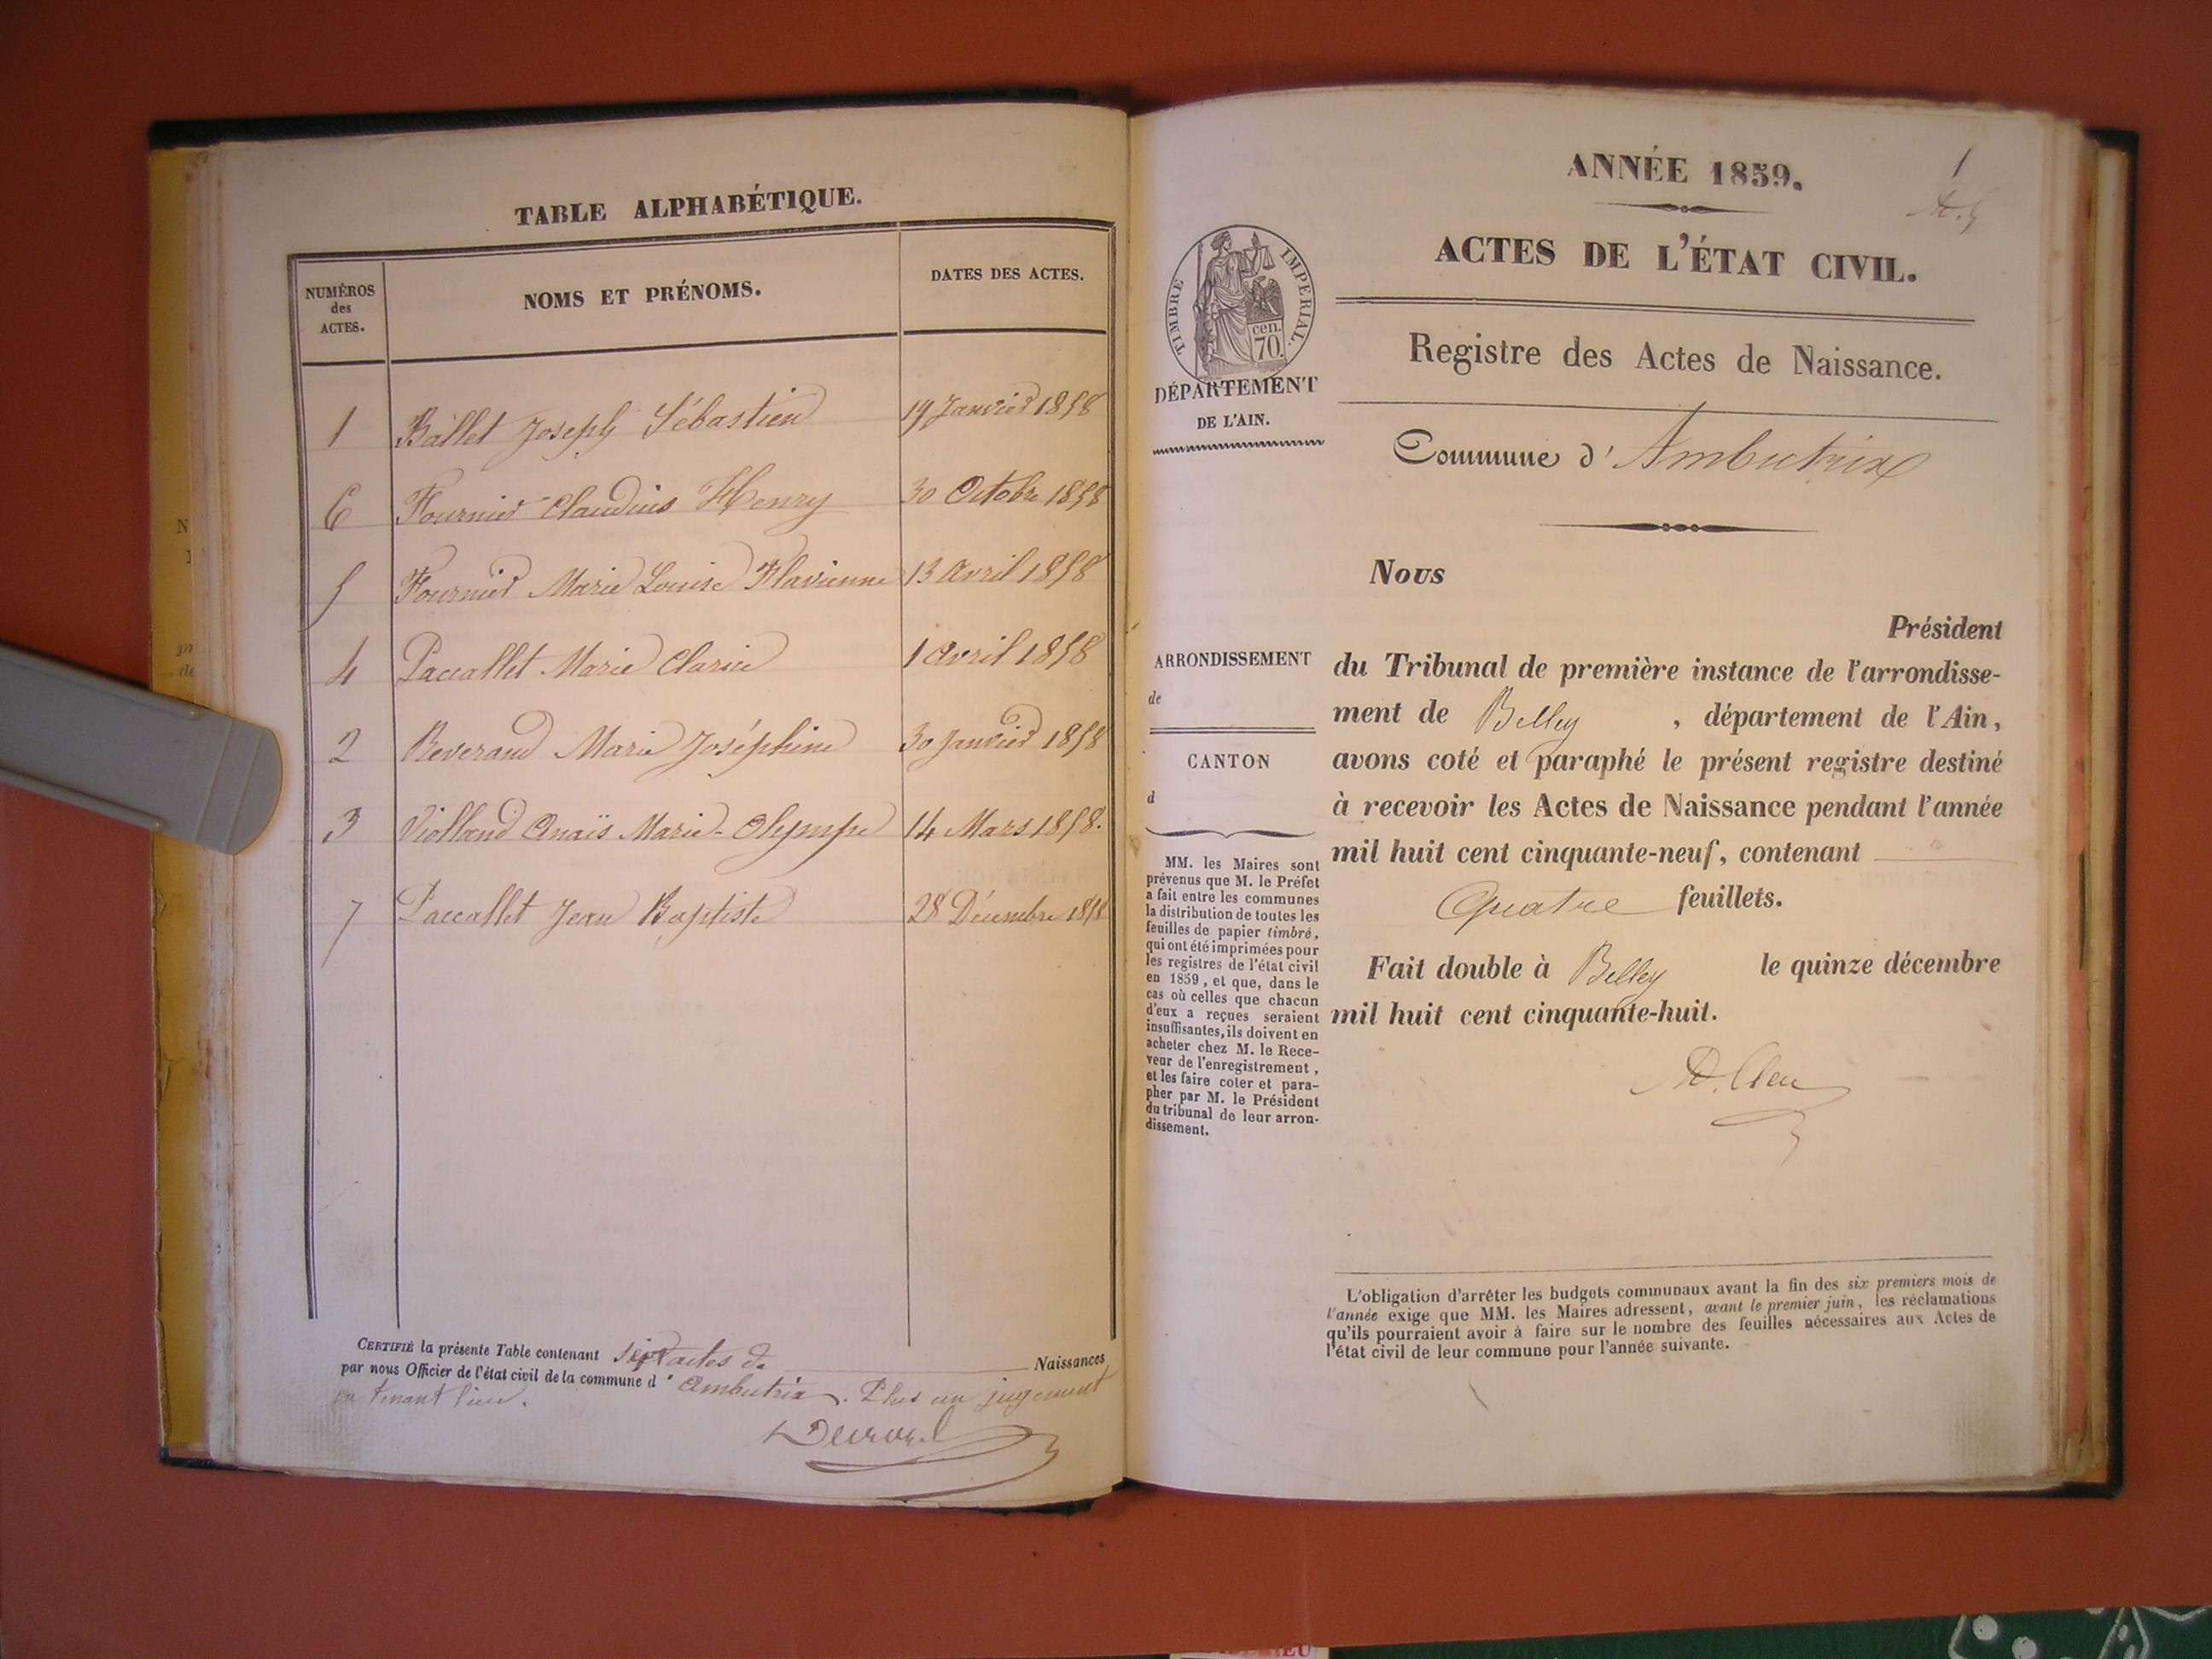 TABLE ALPHABÉTIQUE.
NUMÉROS
des
ACTES.
NOMS ET PRÉNOMS.
DATES DES ACTES.
1 Ballet Joseph Sébastien 19 Janvier 1858
6 Fournier Claudius Henry 30 Octobre 1858
5 Fournier Marie Louise Flavienne 13 Avril 1858
4 Paccallet Marie Clarice 1 Avril 1858
2 Reverand Marie Joséphine 30 Janvier 1858
3 Violland Anaïs Marie-Olympe 14 Mars 1858.
7 Paccallet Jean Baptiste 28 Décembre 1858
CERTIFIÉ la présente Table contenant sept actes de Naissances
par nous Officier de l'état civil de la commune d' Ambutrix. Plus un jugement
en tenant lieu.
ANNÉE 1859.
1
ACTES DE L'ÉTAT CIVIL.
TIMBRE IMPERIAL.
cen.
70.
DÉPARTEMENT
DE L'AIN.
Registre des Actes de Naissance.
Commune d' Ambutrix
Nous
Président
du Tribunal de première instance de l'arrondisse-
ment de Belley, département de l'Ain,
avons coté et paraphé le présent registre destiné
à recevoir les Actes de Naissance pendant l'année
mil huit cent cinquante-neuf, contenant
Quatre feuillets.
Fait double à Belley le quinze décembre
mil huit cent cinquante-huit.
ARRONDISSEMENT
de
CANTON
d
MM. les Maires sont
prévenus que M. le Préfet
a fait entre les communes
la distribution de toutes les
feuilles de papier timbré,
qui ont été imprimées pour
les registres de l'état civil
en 1859, et que, dans le
cas où celles que chacun
d'eux a reçues seraient
insuffisantes, ils doivent en
acheter chez M. le Rece-
veur de l'enregistrement,
et les faire coter et para-
pher par M. le Président
du tribunal de leur arron-
dissement.
L'obligation d'arrêter les budgets communaux avant la fin des six premiers mois de
l'année exige que MM. les Maires adressent, avant le premier juin, les réclamations
qu'ils pourraient avoir à faire sur le nombre des feuilles nécessaires aux Actes de
l'état civil de leur commune pour l'année suivante.